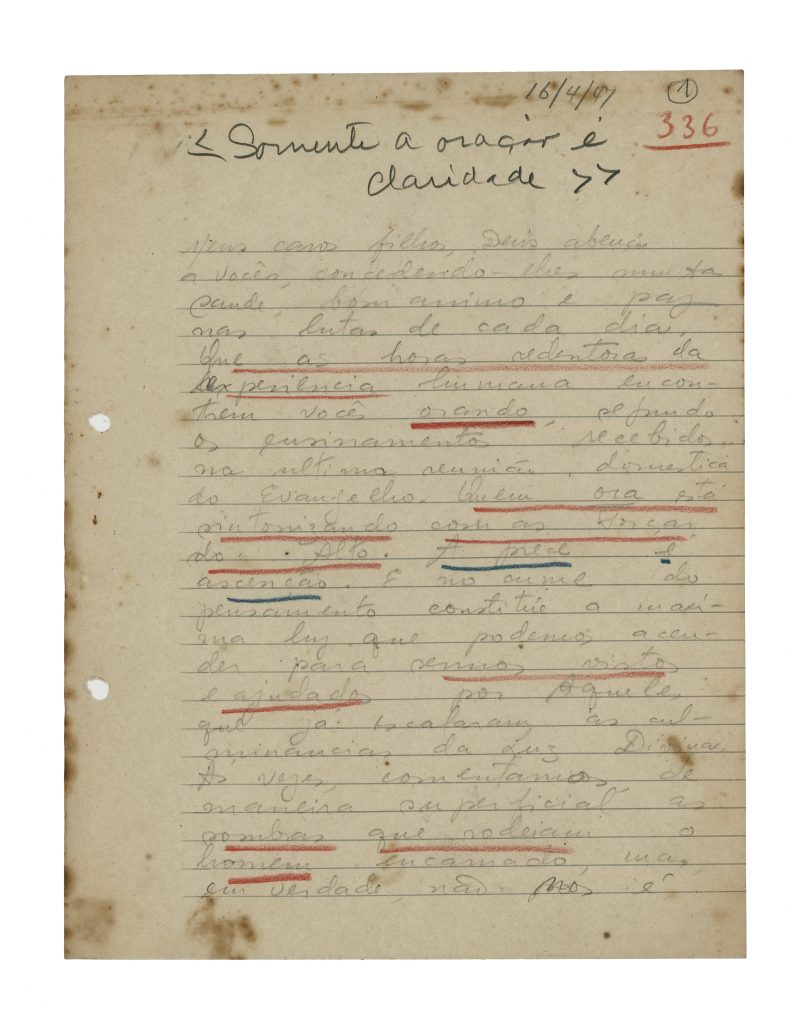 16/4/47 1
336
<< Somente a oração é
claridade >>
Meus caros filhos, Deus abençoe
a vocês, concedendo-lhes muita
saude, bom animo e paz
nas lutas de cada dia.
Que as horas redentoras da
experiência humana encon-
trem vocês orando, segundo
os ensinamentos recebidos
na ultima reunião domestica
do Evangelho. Quem ora está
sintonizando com as forças
do Alto. A prece é
ascenção. E no cume do
pensamento constitue a maxi-
ma luz que podemos acen-
der para sermos vistos
e ajudados por Aqueles
que já escalaram as cul-
minancias da Luz Divina.
Ás vezes, comentamos de
maneira superficial as
sombras que rodeiam o
homem encarnado, mas,
em verdade, não nos é